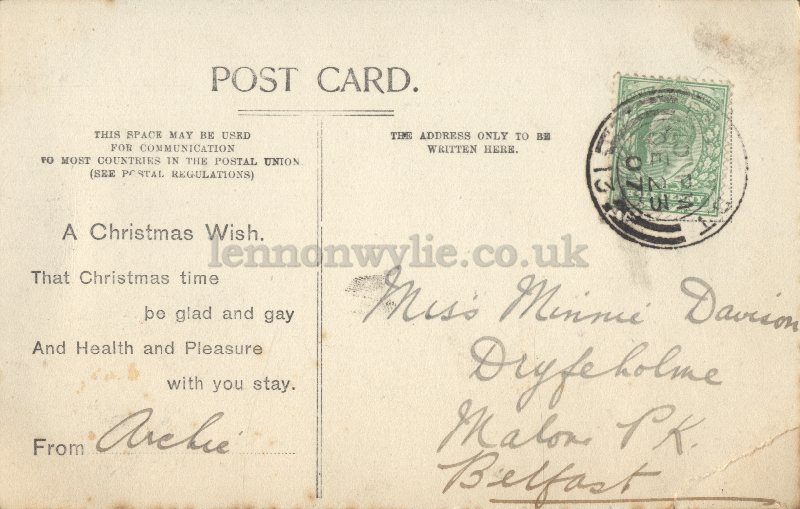 POST CARD.
THIS SPACE MAY BE USED
FOR COMMUNICATION
TO MOST COUNTRIES IN THE POSTAL UNION
(SEE POSTAL REGULATIONS)
THE ADDRESS ONLY TO BE
WRITTEN HERE.
A Christmas Wish.
That Christmas time
be glad and gay
And Health and Pleasure
with you stay.
From Archie
lennonwylie.co.uk
Miss Minnie Davison
Dryfeholme
Malone Pk.
Belfast
DE 25
07